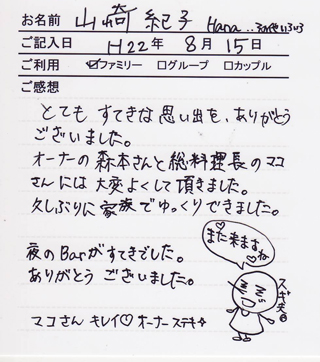 お名前 山崎 紀子 Hana..
ご記入日 H22年 8月15日
ご利用 ☑ファミリー □グループ □カップル
ご感想
とても すてきな思い出を、ありがとう
ございました。
オーナーの森本さんと総料理長のマコ
さんには大変よくして頂きました。
久しぶりに家族でゆっくりできました。
また来ますね
夜のBarがすてきでした。
ありがとう ございました。
マコさん キレイ♡ オーナー ステキ☆